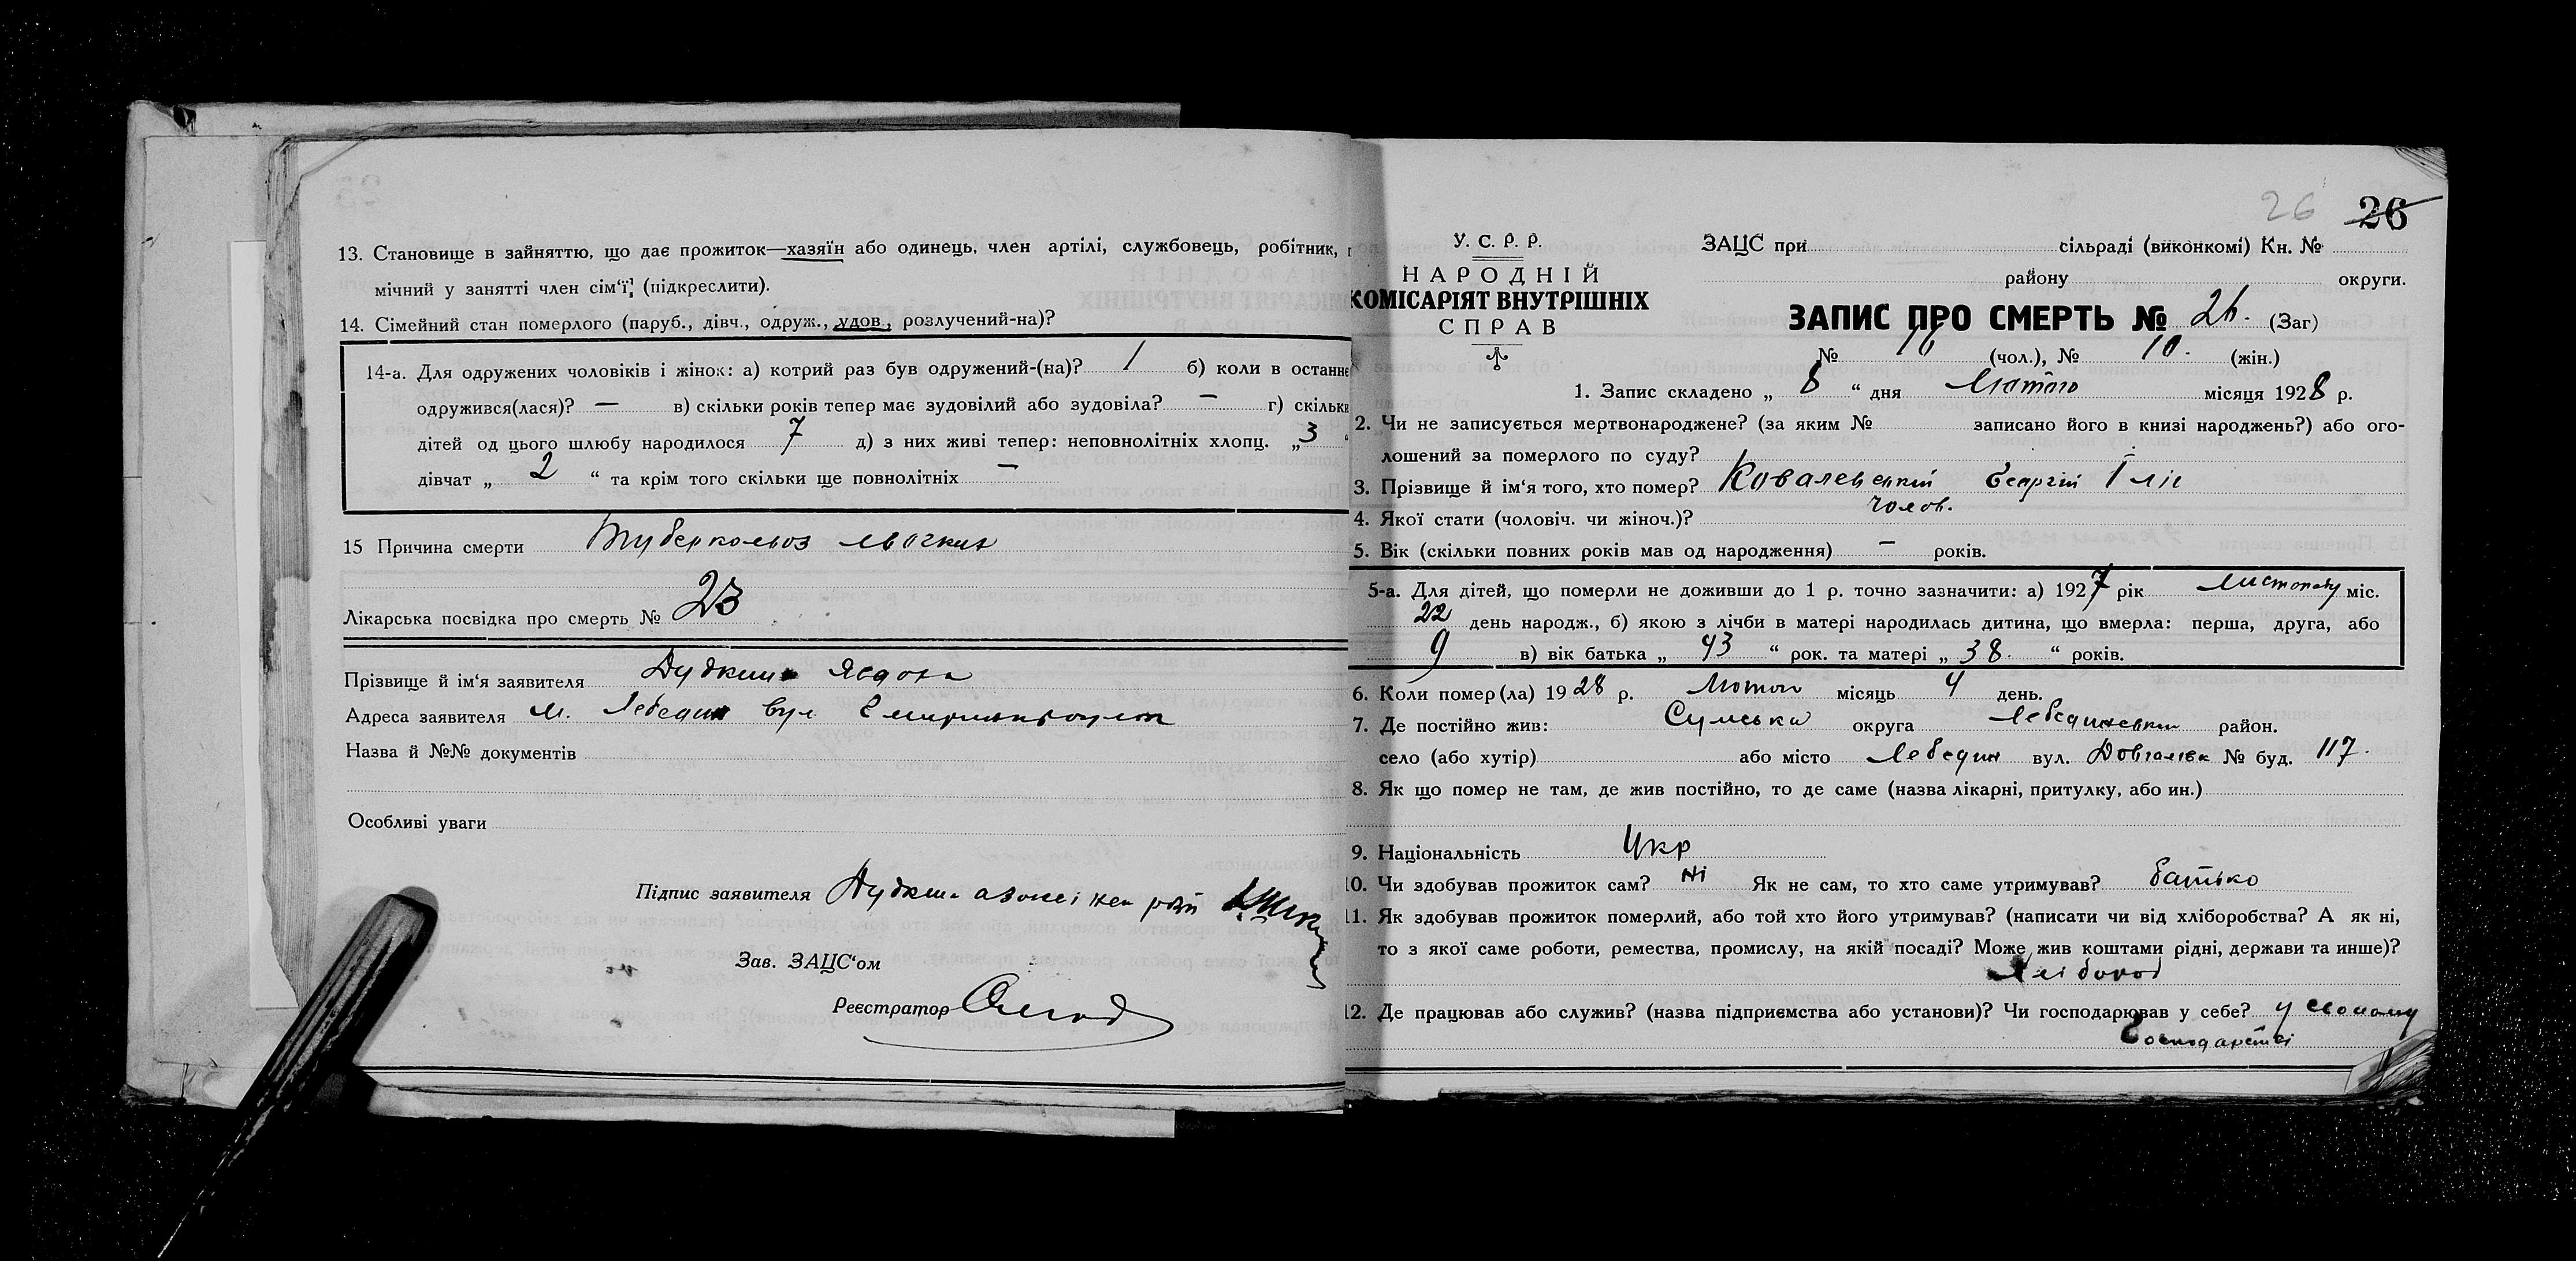 13. Становище в зайняттю, що дає прожиток—хазяїн або одинець, член артілі, службовець, робітник,
мічний у занятті член сім'ї; (підкреслити).
14. Сімейний стан померлого (паруб., дівч., одруж., удов., розлучений-на)?
14-а. Для одружених чоловіків і жінок: а) котрий раз був одружений-(на)? 1 б) коли в останнє
одружився(лася)? — в) скільки років тепер має зудовілий або зудовіла? — г) скільки
дітей од цього шлюбу народилося 7 д) з них живі тепер: неповнолітніх хлопц. „ 3 “
дівчат „ 2 “ та крім того скільки ще повнолітніх —
15 Причина смерти Туберкольоз льогких
Лікарська посвідка про смерть № 23
Прізвище й ім'я заявителя Дудкина Явдоха
Адреса заявителя м. Лебедин вул
Назва й №№ документів
Особливі уваги
Підпис заявителя Дудкина
Зав. ЗАЦС'ом
Реєстратор
26 26
У. С. Р. Р.
НАРОДНІЙ
КОМІСАРІЯТ ВНУТРІШНІХ
СПРАВ
ЗАЦС при сільраді (виконкомі) Кн. №
району округи.
ЗАПИС ПРО СМЕРТЬ № 26. (Заг)
№ 16 (чол.), № 10. (жін.)
1. Запис складено „ 8 “ дня Лютого місяця 1928 р.
2. Чи не записується мертвонароджене? (за яким № записано його в книзі народжень?) або ого-
лошений за померлого по суду? —
3. Прізвище й ім'я того, хто помер? Ковалевський Георгій Іліє
4. Якої стати (чоловіч. чи жіноч.)? чолов.
5. Вік (скільки повних років мав од народження) — років.
5-а. Для дітей, що померли не доживши до 1 р. точно зазначити: а) 1927 рік листопаду міс.
22 день народж., б) якою з лічби в матері народилась дитина, що вмерла: перша, друга, або
9 в) вік батька „ 43 “ рок. та матері „ 38. “ років.
6. Коли помер(ла) 1928 р. Лютого місяць 4 день.
7. Де постійно жив: Сумська округа Лебединський район.
село (або хутір) або місто Лебедин вул. Довгалівка № буд. 117.
8. Як що помер не там, де жив постійно, то де саме (назва лікарні, притулку, або ин.)
9. Національність Укр
10. Чи здобував прожиток сам? ні Як не сам, то хто саме утримував? батько
11. Як здобував прожиток померлий, або той хто його утримував? (написати чи від хліборобства? А як ні,
то з якої саме роботи, ремества, промислу, на якій посаді? Може жив коштами рідні, держави та инше)?
Хлібороб
12. Де працював або служив? (назва підприємства або установи)? Чи господарював у себе? у своєму
Господарстві